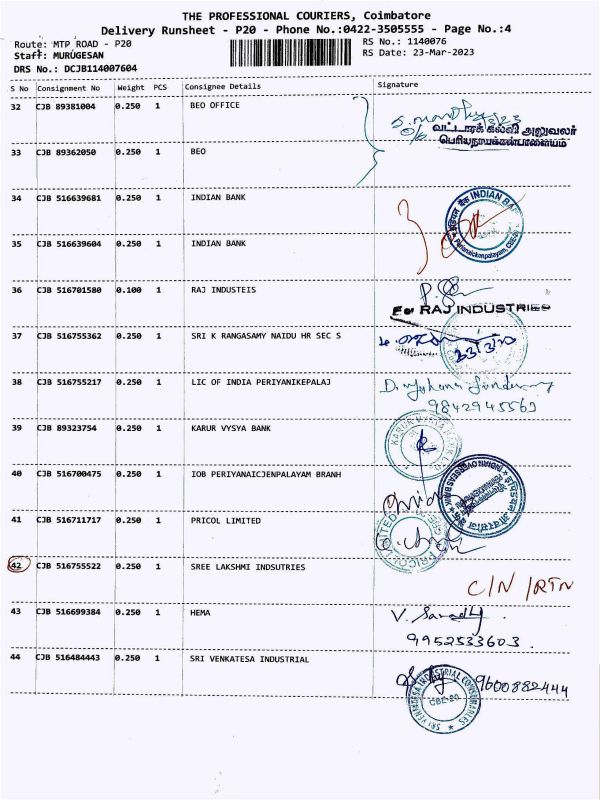 THE PROFESSIONAL COURIERS, Coimbatore
Delivery Runsheet - P20 - Phone No.:0422-3505555 - Page No.:4
Route: MTP ROAD - P20
RS No.: 1140076
Staff: MURUGESAN
RS Date: 23-Mar-2023
DRS No.: DCJB114007604
S No Consignment No Weight PCS Consignee Details Signature
32 CJB 89381004 0.250 1 BEO OFFICE
வட்டாரக் கல்வி அலுவலர்
பெரியநாயக்கன்பாளையம்
33 CJB 89362050 0.250 1 BEO
34 CJB 516639681 0.250 1 INDIAN BANK
INDIAN BANK
35 CJB 516639604 0.250 1 INDIAN BANK
36 CJB 516701580 0.100 1 RAJ INDUSTEIS
For RAJ INDUSTRIES
37 CJB 516755362 0.250 1 SRI K RANGASAMY NAIDU HR SEC S
23/3/23
38 CJB 516755217 0.250 1 LIC OF INDIA PERIYANIKEPALAJ
9842945563
39 CJB 89323754 0.250 1 KARUR VYSYA BANK
KARUR VYSYA BANK
40 CJB 516700475 0.250 1 IOB PERIYANAICJENPALAYAM BRANH
INDIAN OVERSEAS BANK
41 CJB 516711717 0.250 1 PRICOL LIMITED
PRICOL LIMITED
42 CJB 516755522 0.250 1 SREE LAKSHMI INDSUTRIES
C/N /RTN
43 CJB 516699384 0.250 1 HEMA
9952533603
44 CJB 516484443 0.250 1 SRI VENKATESA INDUSTRIAL
9600882444
SRI VENKATESA INDUSTRIAL CONSUMABLES
CBE-20